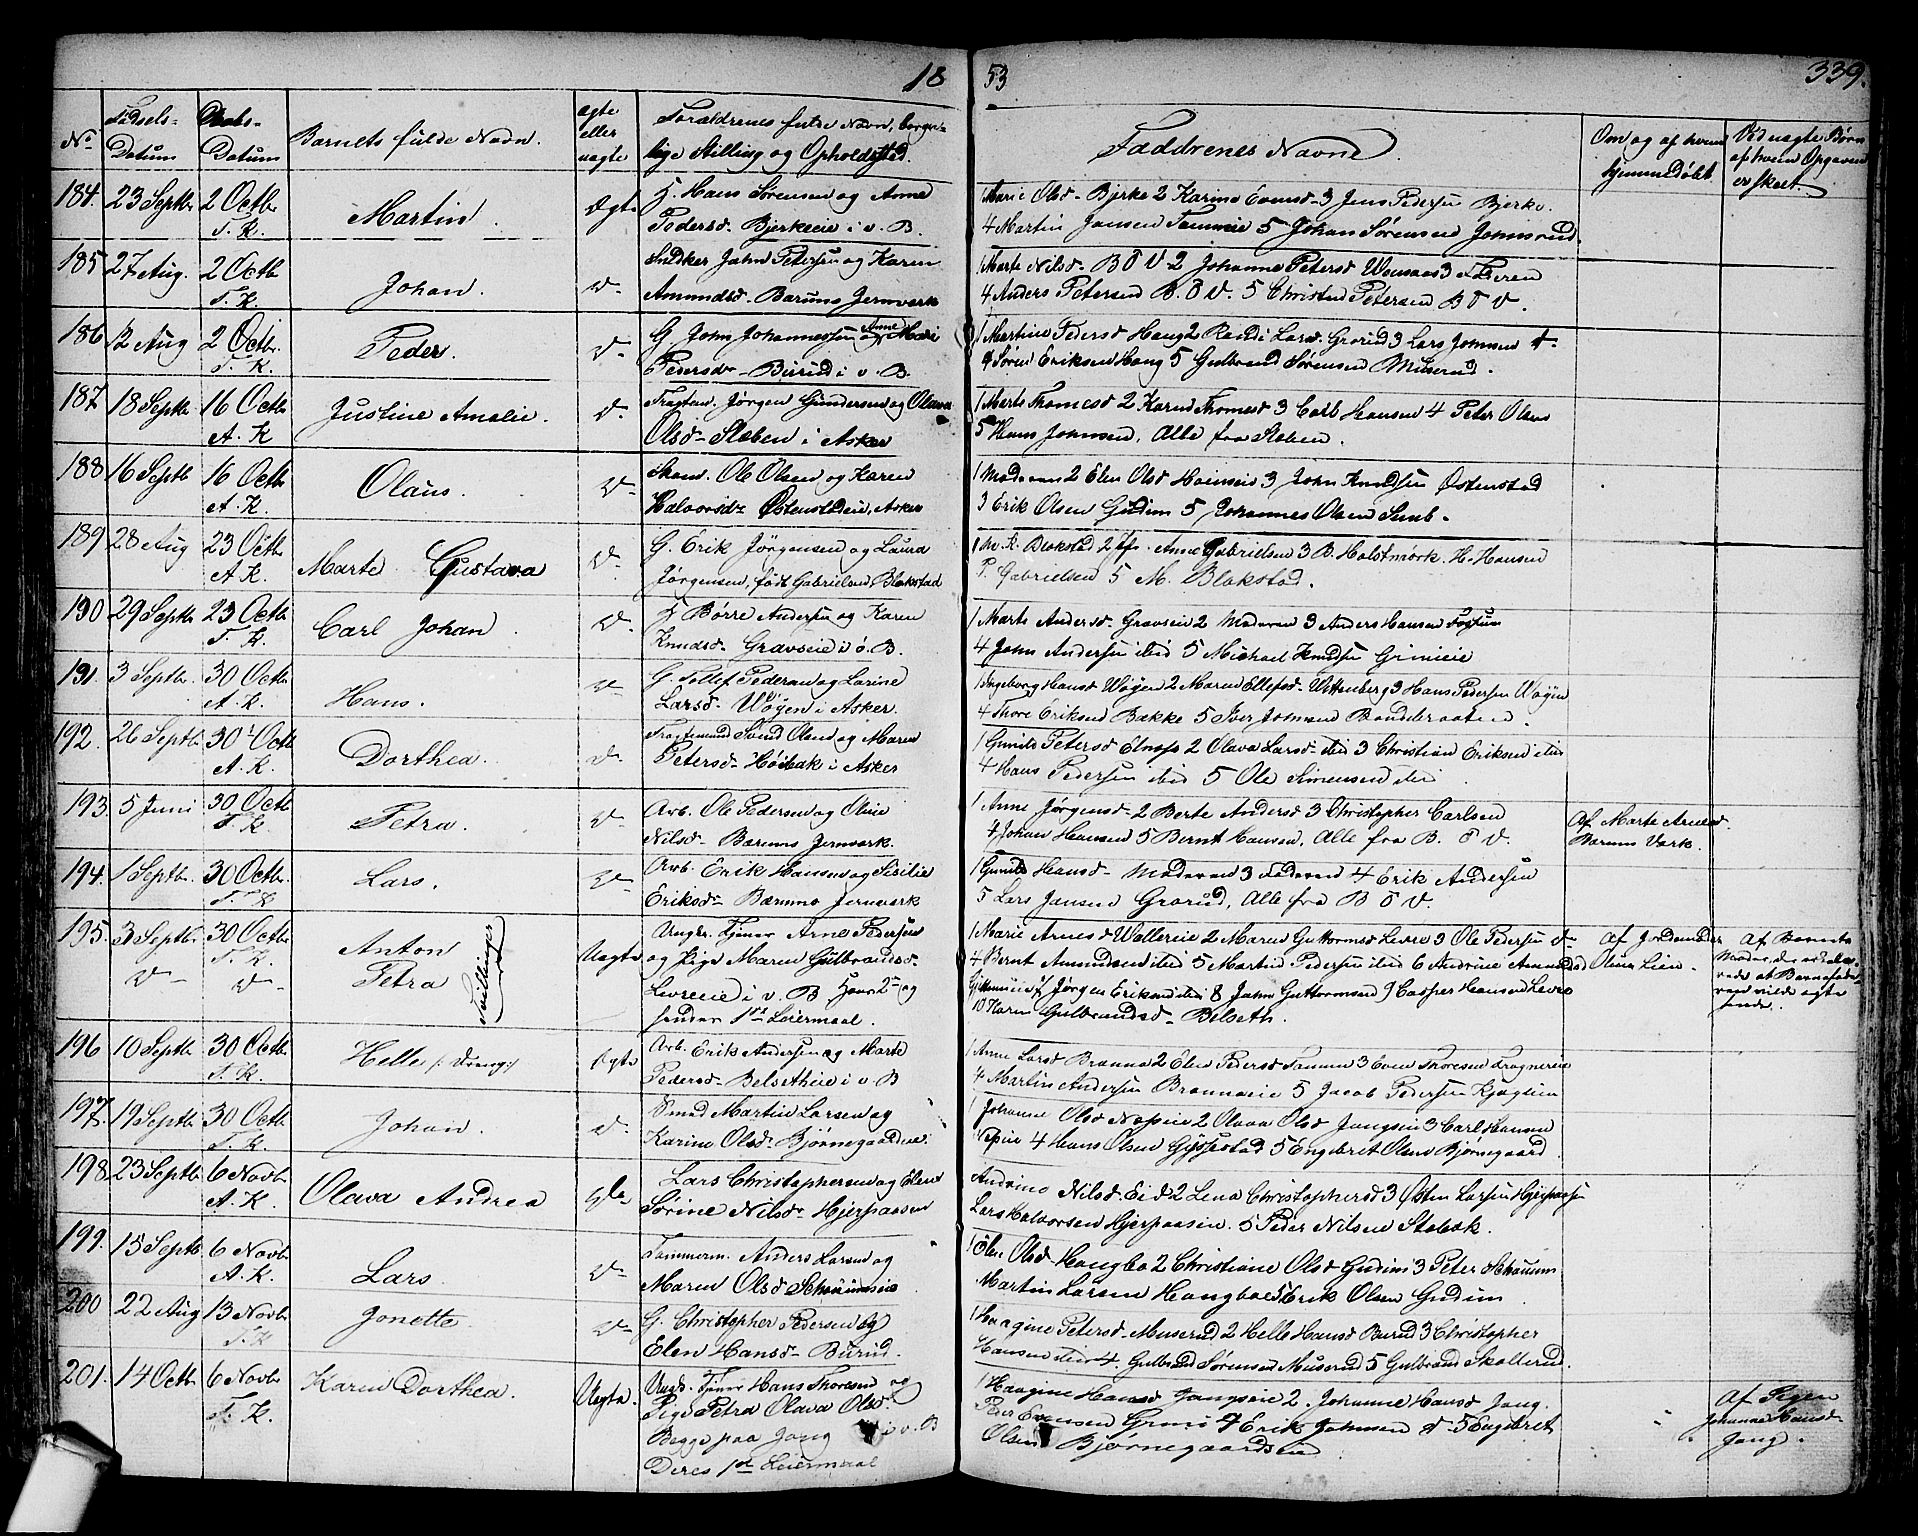 18
53
339.
No
Födsels-
Datum
Daabs-
Datum
Barnets fulde Navn.
ægte
eller
uægte
Forældrenes fulde Navn, borger-
lige Stilling og Opholdssted.
Faddrenes Navne.
Om og af hvem
hjemmedöbt
Ved uægte Børn
af hvem Opgaven
er skeet.
184. 23 Septbr 2 Octbr T. K. Martin. Ægte
H. Hans Sørensen og Anne
Pedersd. Bjerkeeie i v. B.
1 Marie Olsd. Bjerke 2 Karine Evensd. 3 Jens Pedersen Bjerke.
4 Martin Jansen Tammeie 5 Johan Sørensen Johnsrud
185 27 Aug. 2 Octbr T. K. Johan. D-
Snedker John Petersen og Karen
Amundsd. Bærums Jernværk
1 Marte Nilsd. B O V 2 Johanne Petersd 3 Faderen
4 Anders Petersen B. O V. 5 Christen Petersen B O V.
186 12 Aug 2 Octbr. T. K. Peder. D-
G John Johannessen og Anne Marie
Pedersdr Burud i v. B.
1 Martine Pedersd Haug 2 Randi Larsd. Grorud 3 Lars Johnsen d-
4 Søren Eriksen Haug 5 Gulbrand Sørensen Muserud.
187 18 Septbr 16 Octbr A. K Justine Amalie. D-
Fragtm. Jørgen Gundersen og Olava
Olsd. Sleben i Asker
1 Marte Thomesd 2 Karen Thomesd 3 Carl Hansen 4 Peter Olsen
5 Hans Johnsen, Alle fra Sleben.
188 16 Septbr 16 Octbr A. K. Olaus. D-
Skom. Ole Olsen og Karen
Halvorsdr Østenstadeie, Asker
1 Moderen 2 Elen Olsd 3 John Knudsen Østenstad
3 Erik Olsen Gudim 5 Johannes Olsen Semb.
189 28 Aug 23 Octbr A. K. Marte Gustava D-
G. Erik Jörgensen og Laura
Jørgensen, født Gabrielsen, Blakstad
1 M. K. Blakstad 2 Jfr. Anne Gabrielsen 3 B. Holstmørk. H. Hansen
P. Gabrielsen 5 M. Blakstad.
190 29 Septbr 23 Octbr T. K. Carl Johan D-
H Børre Andersen og Karen
Knudsd. Gravseie i ö. B.
1 Marte Andersd. Gravseie 2 Moderen 3 Anders Hansen Fossum
4 John Andersen ibid 5 Michael Knudsen Grinieie
191. 3 Septbr. 30 Octbr A. K. Hans. D-
G. Tollef Pedersen og Larine
Larsd. Wöyen i Asker.
1 Ingeborg Hansd Wøyen 2 Maren Ellefsd. Wettenberg 3 Hans Pedersen Wøyen
4 Thore Eriksen Bække 5 Iver Johnsen
192. 26 Septbr 30 Octbr A. K. Dorthea. D-
Fragtemand Svend Olsen og Maren
Petersd. Høibak i Asker
1 Gunild Petersd 2 Olava Larsd. ibid 3 Christian Eriksen ibid
4 Hans Pedersen ibid 5 Ole Simensen ibid
193. 5 Juni 30 Octbr T. K. Petra. D-
Arb. Ole Pedersen og Oline
Nilsd. Bærums Jernværk.
1 Anne Jørgensd. 2 Berte Andersd 3 Christopher Carlsen
4 Johan Hansen 5 Bernt Hansen, Alle fra B. O V.
Af Marte Arnesd.
Bærums Værk.
194. 1 Septbr. 30 Octbr. T. K Lars. D-
Arb. Erik Hansen og Sisilie
Eriksdr Bærums Jernværk
1 Gunild Hansd. Moderen 3 Faderen 4 Erik Andersen
5 Lars Jansen Grorud, Alle fra B O V.
195. 3 Septbr. 30 Octbr. T. K. Anton Uægte
D- D- Petra
Tvillinger
Ungkr. Tjener Arne Pedersen
og Pige Maren Gulbrandsd.
Levreeie i v. B Hans 2det og
hendes 1ste Leiermaal.
1 Marie Arnesd Wallereie 2 Maren Guttormsd Levre 3 Ole Pedersen d-
4 Bernt Amundsen ibid 5 Martin Pedersen ibid 6 Andrine Amundsd
7 Jørgen Eriksen ibid 8 John Guttormsen 9 Casper Hansen Levre
10 Karen Gulbrandsd. Belseth.
Af Jordemoder
Olsen Lien.
Af Barnets
Moder, der erklæ-
rede at Barnefade-
ren vilde ægte
hende.
196 10 Septbr 30 Octbr T. K. Helle /: Dreng :/ Ægte
Arb. Erik Andersen og Marte
Pedersd. Belsetheie i v. B
1 Anne Larsd Brænna 2 Elen Pedersd Tanum 3 Even Thoresen Fragnereie
4 Martin Andersen Brænnaeie 5 Jacob Pedersen
197. 19 Septbr 30 Octbr T. K. Johan. D-
Smed Martin Larsen og
Karine Olsdr Bjørnegaardeie.
1 Johanne Olsd Næseie 2 Olava Olsd Jongseie 3 Carl Hansen
Næseie 4 Hans Olsen Gjettestad 5 Engebret Olsen Bjørnegaard.
198. 23 Septbr 6 Novbr A. K. Olava Andrea
Lars Christophersen og Elen
Sørine Nilsdr Hjerpaasen
Andrine Nilsd. Eid 2 Lena Christophersd 3 Østen Larsen Hjerpaasen
Lars Halvorsen Hjerpaasen. 5 Peder Nilsen Stabæk.
199. 15 Septbr 6 Novbr A. K. Lars D-
Tømmerm. Anders Larsen og
Maren Olsd Schoumseie
1 Elen Olsd. Haugbo 2 Christiane Olsd Gudim 3 Peter Schoum
Martin Larsen Haugboe 5 Erik Olsen Gudim
200 22 Aug 13 Novbr T. K Jonette D-
G. Christopher Pedersen og
Elen Hansd. Burud.
1 Haagine Petersd. Muserud 2 Helle Hansd Burud 3 Christopher
Hansen ibid 4. Gulbrand Sørensen Muserud 5 Gulbrand Skollerud.
201. 14 Octbr 6 Novbr T. K. Karen Dorthea. Uægte.
Ungk. Tjener Hans Thoresen og
Pige Petra Olava Olsdr
Begge paa Jong i v. B
Deres 1ste Leiermaal
1 Haagine Hansd Jongseie 2. Johanne Hansd Jong.
Peder Evensen 4 Erik Johnsen d- 5 Engebret
Olsen Bjørnegaardseie
Af Pigen
Johanne Hansd
Jong.